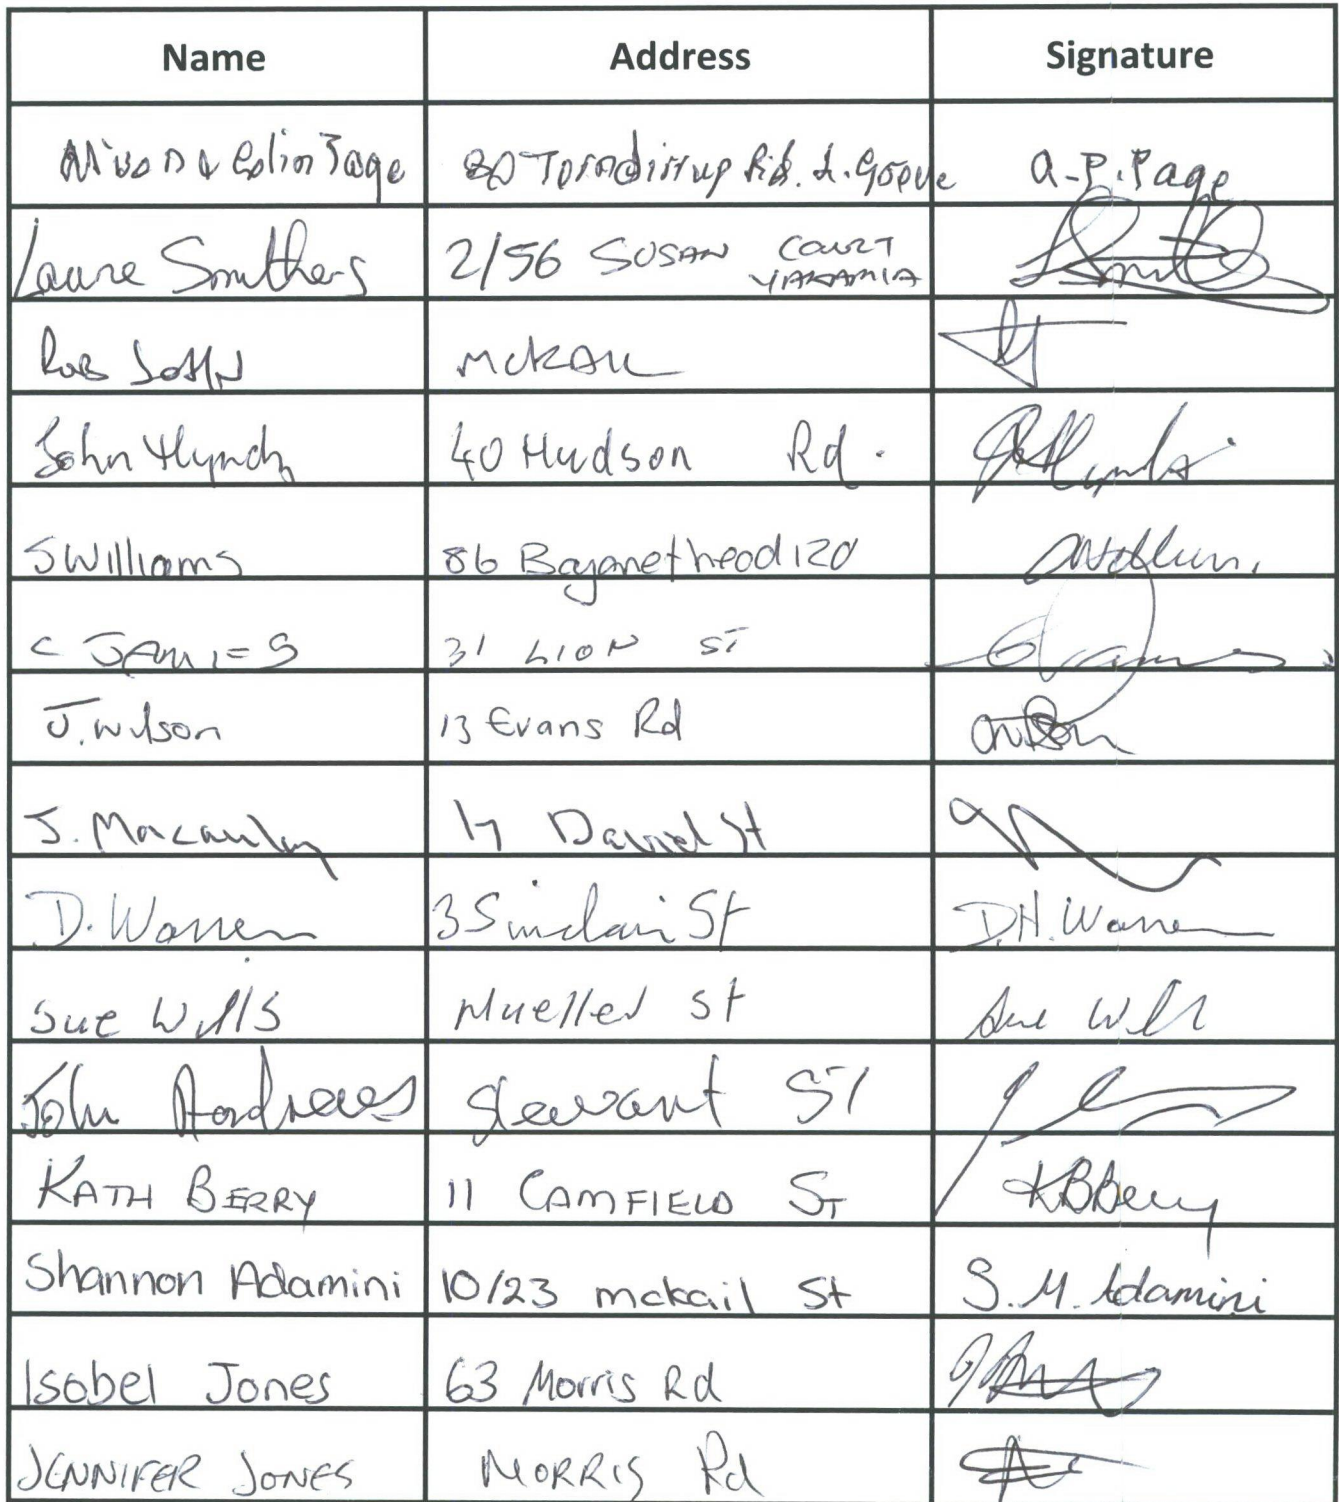 Name Address Signature
& Colin Page 80 Torndirrup Rd. L. Grove A.P. Page
Smithers 2/56 SUSAN COURT
YAKAMIA
Rob McKAIL
John 40 Hudson Rd.
S Williams 86 Bayonethead Rd
C JAMES 31 LION ST
J. Wilson 13 Evans Rd
J. Macaulay 17 David St
D. Warren 3 Sinclair St D.H. Warren
Sue Wills Mueller St Sue Wills
John Andrews Stewart ST
KATH BERRY 11 CAMFIELD ST KBBerry
Shannon Adamini 10/23 mckail St S.M. Adamini
Isobel Jones 63 Morris Rd
JENNIFER JONES MORRIS Rd